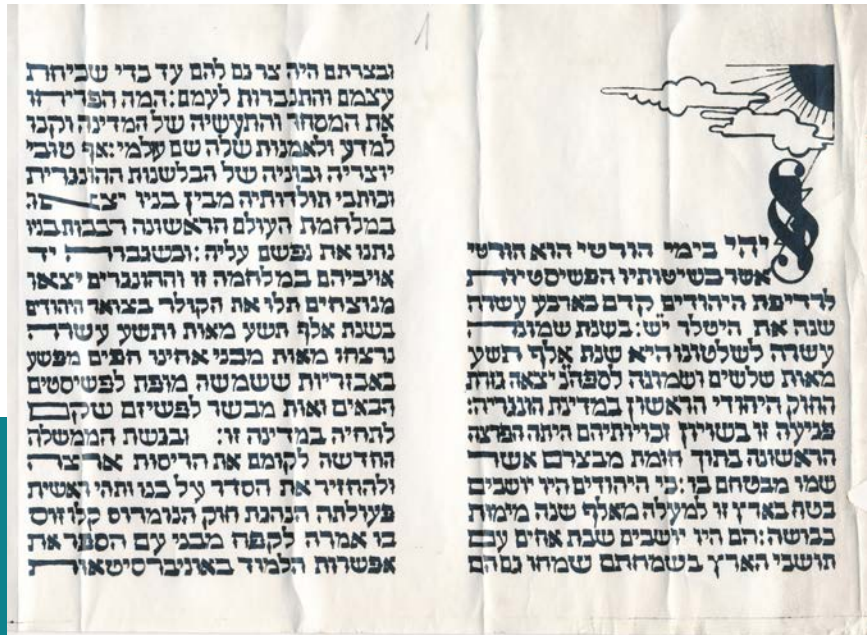 1
ויהי בימי הורטי הוא הורטי
אשר בשיטותיו הפשיסטיות
לרדיפת היהודים קדם בארבע עשרה
שנה את היטלר יש: בשנת שמונה
עשרה לשלטונו היא שנת אלף תשע
מאות שלשים ושמונה לספה"נ יצאה גזרת
החוק היהודי הראשון במדינת הונגריה:
פגיעה זו בשויון זכויותיהם היתה הפרצה
הראשונה בתוך חומת מבצרם אשר
שמו מבטחם בו: כי היהודים היו יושבים
בטח בארץ זו למעלה מאלף שנה מימות
כבושה: הם היו יושבים שבת אחים עם
תושבי הארץ בשמחתם שמחו גם הם
ובצרתם היה צר גם להם עד כדי שכיחת
עצמם והתנכרות לעמם: המה הפריחו
את המסחר והתעשיה של המדינה וקנו
למדע ולאמנות שלה שם עולמי: אף טובי
יוצריה ובוניה של הבלשנות ההונגרית
וכותבי תולדותיה מבין בניו יצאו
במלחמת העולם הראשונה רבבות בניו
נתנו את נפשם עליה: ובשגברה יד
אויביהם במלחמה זו וההונגרים יצאו
מנוצחים תלו את הקולר בצואר היהודים
בשנת אלף תשע מאות ותשע עשרה
נרצחו מאות מבני אחינו חפים מפשע
באכזריות ששמשה מופת לפשיסטים
הבאים ואות מבשר לפשיזם שקם
לתחיה במדינה זו: ובגשת הממשלה
החדשה לקומם את הריסות ארצה
ולהחזיר את הסדר על כנו ותהי ראשית
פעולתה הנהגת חוק הנומרוס קלוזוס
בו אמרה לקפח מבני עם הספר את
אפשרות הלמוד באוניברסיטאות